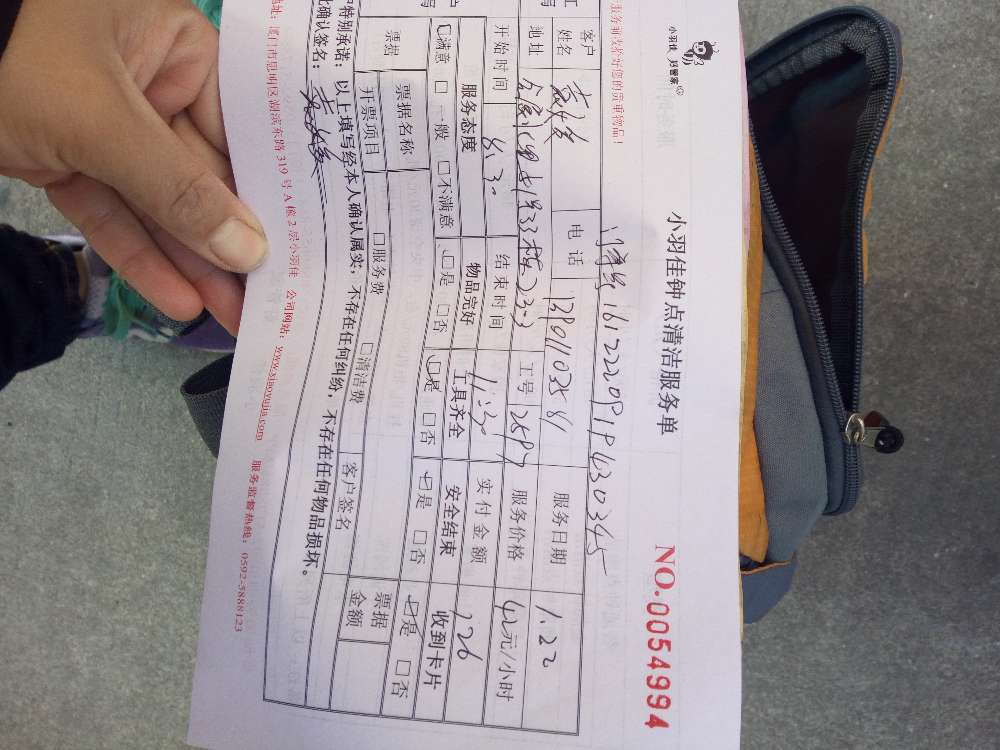 小羽佳 好管家
服务到改好您的贵重物品!
小羽佳钟点清洁服务单
NO.0054994
161222091943034５
客户姓名 电话 服务日期 1.22
地址 33 23-3 工号 2597 服务价格 42元/小时
开始时间 8:30 结束时间 11:30 实付金额 126
服务态度 物品完好 工具齐全 安全结束 收到卡片
☑满意 □一般 □不满意 ☑是 □否 ☑是 □否 ☑是 □否 ☑是 □否
票据 票据名称 □服务费 □清洁费 客户签名 票据金额
开票项目
特别承诺:以上填写经本人确认属实,不存在任何纠纷,不存在任何物品损坏。
此确认签名:
地址:厦门市思明区湖滨东路319号A楼2层小羽佳 公司网站:www.xiaoyujia.com 服务监督热线:0592-5888123